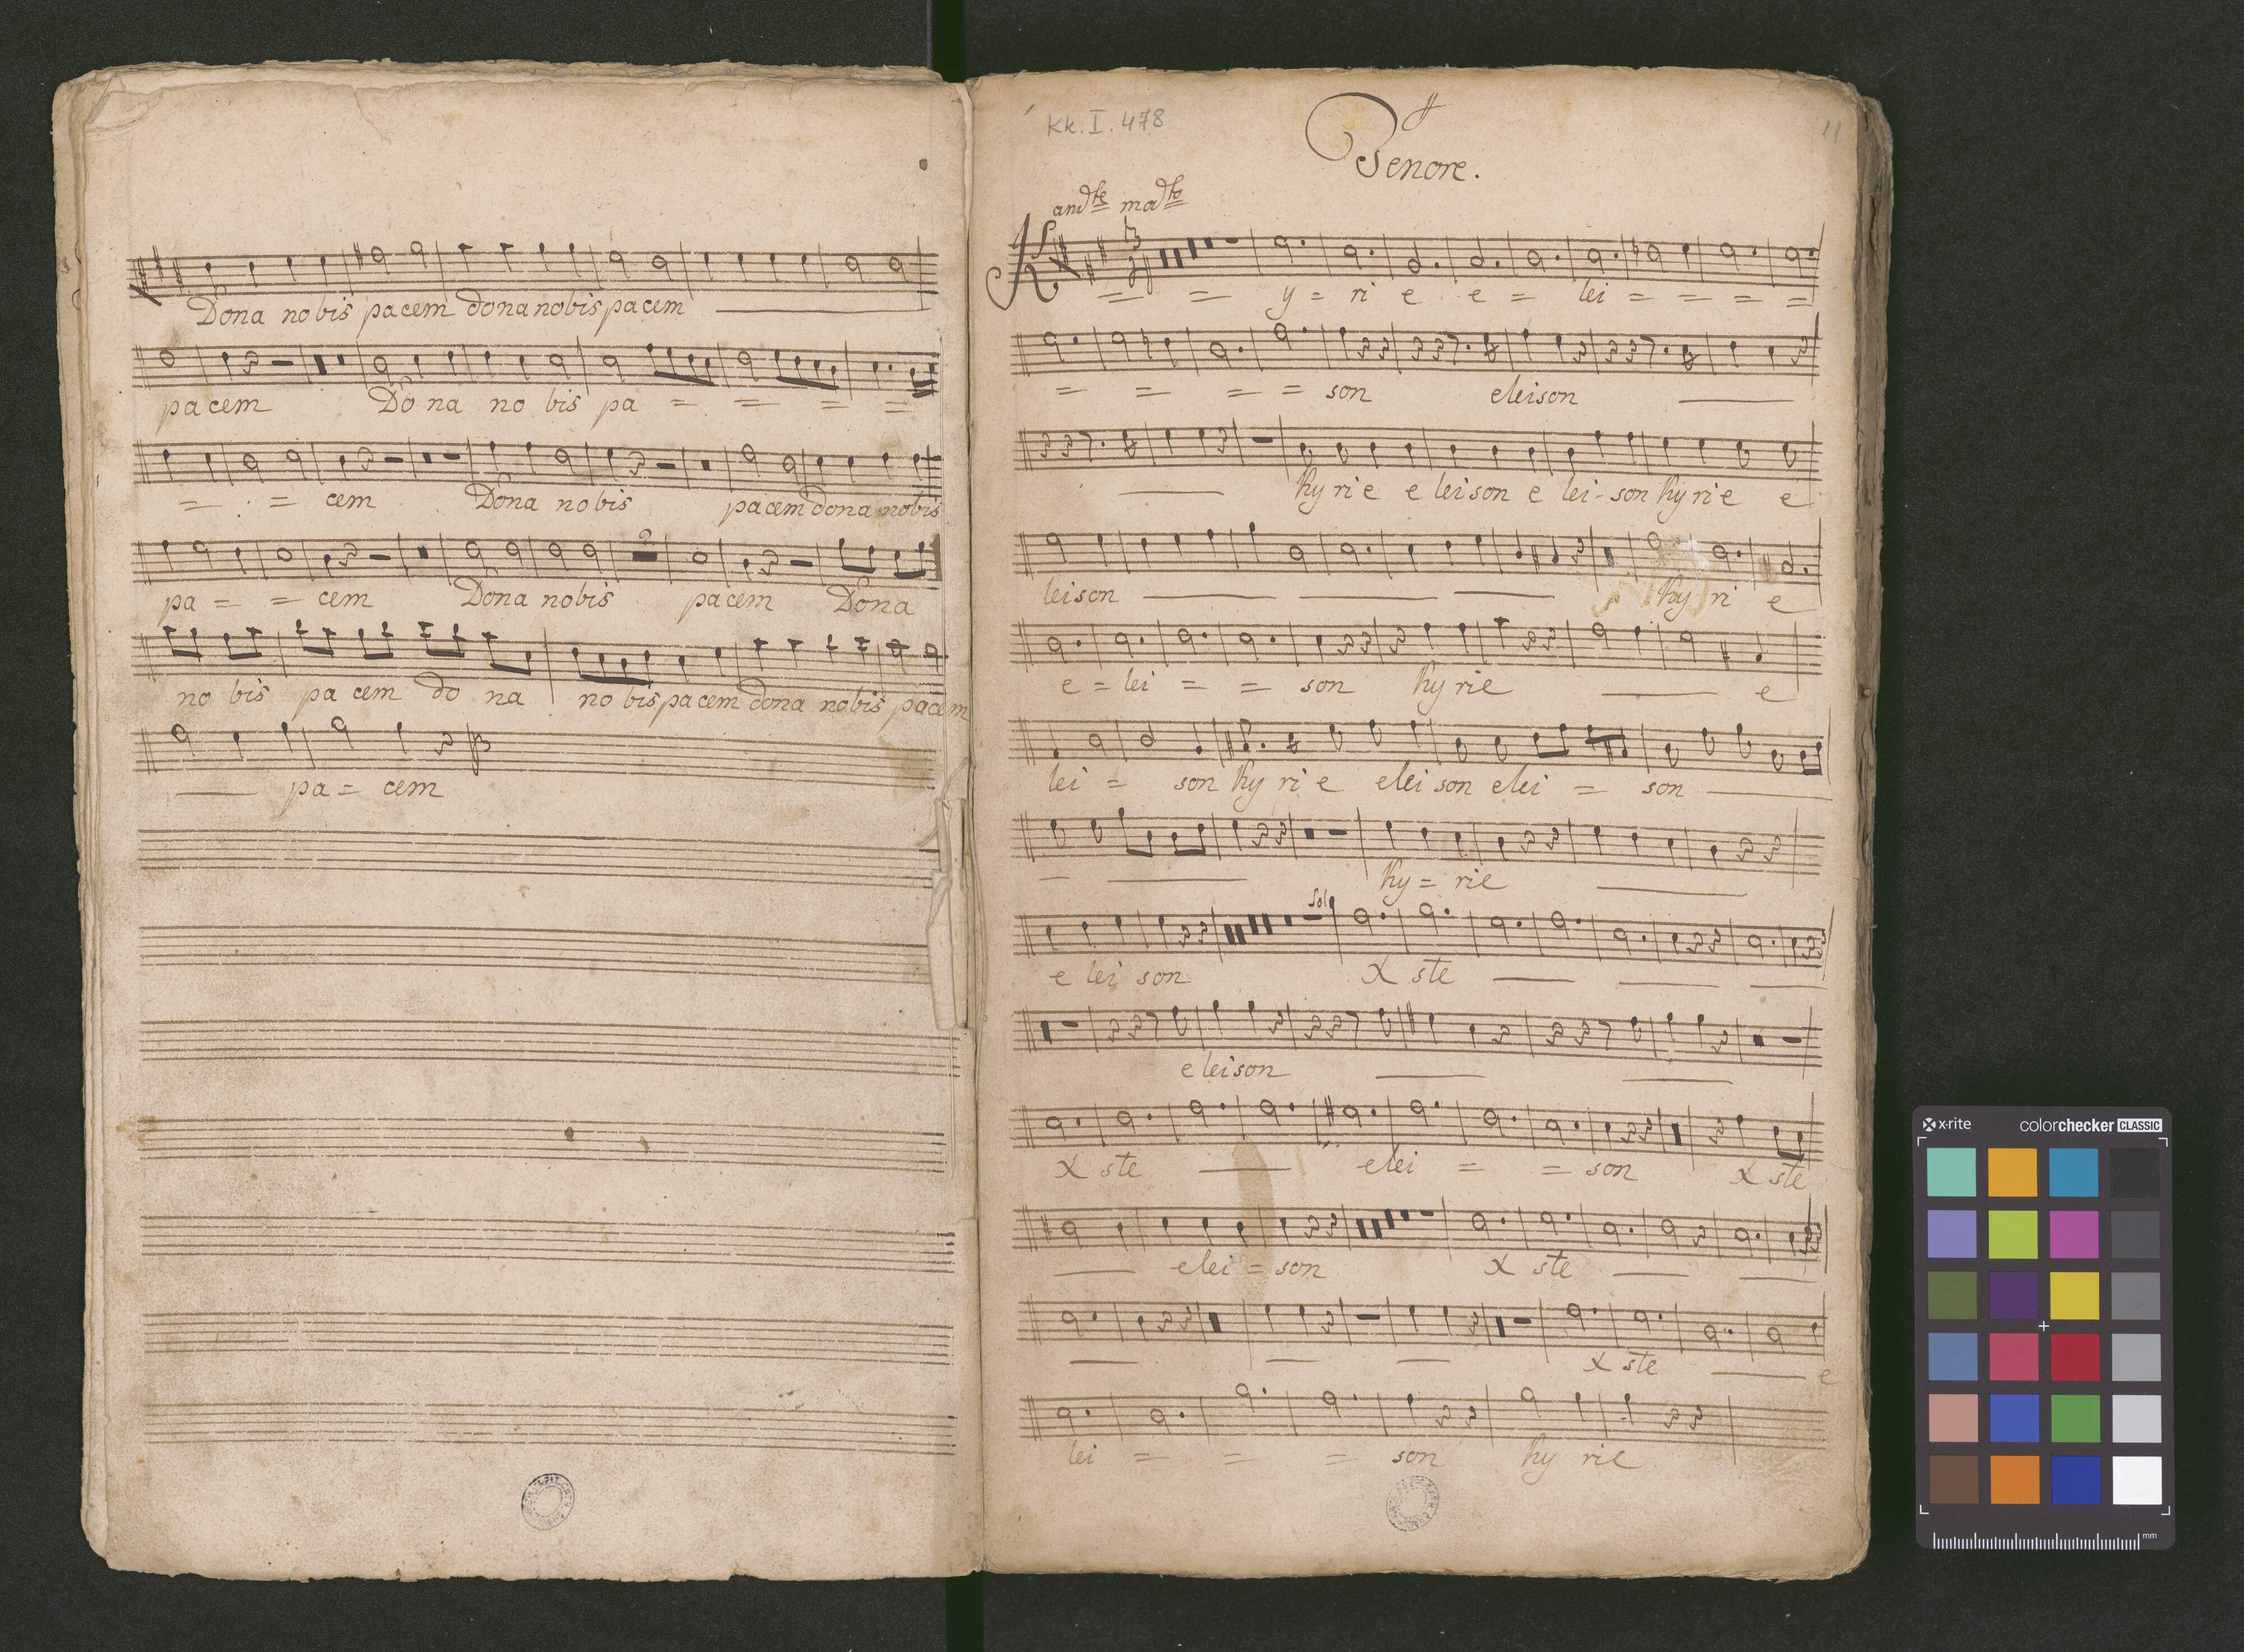 Dona nobis pacem dona nobis pacem
pacem Dona nobis pa = = = =
= = cem Dona nobis pacem dona nobis
pa = = cem Dona nobis pacem Dona
2
no bis pa cem do na no bis pacem dona nobis pacem
pa = cem
Kk. I. 478
11
Tenore.
andte madto
K = = y = ri e e = lei = = = =
= = = = son eleison
kyrie e leison e lei-son kyrie e
leison kyri e
e = lei = = son kyrie e
lei = son kyrie eleison elei = son
ky = rie
Solo
e lei son X ste
eleison
X ste elei = = son X ste
elei = son X ste
X ste e
lei = = = son ky rie
x-rite colorchecker CLASSIC
mm